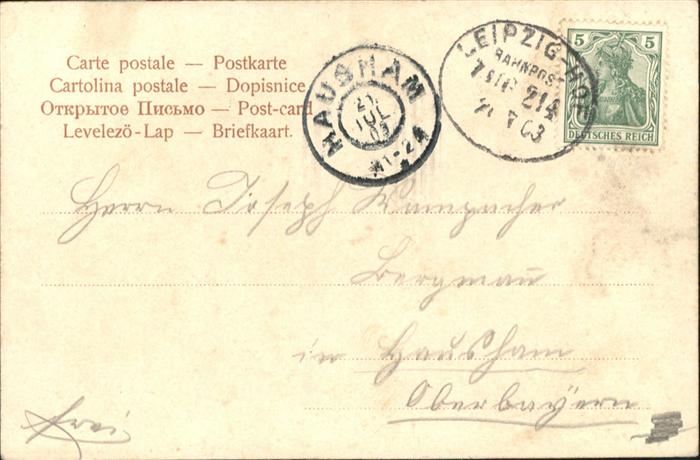 Carte postale — Postkarte
Cartolina postale — Dopisnice
Открытое Письмо — Post-card
Levelező-Lap — Briefkaart.
HAUSHAM
21
JUL
03
LEIPZIG-HOF
BAHNPOST
ZUG 214
21 7 03
5 5
DEUTSCHES REICH
Herrn Joseph
Bergmañ
in Hausham
Oberbayern
frei